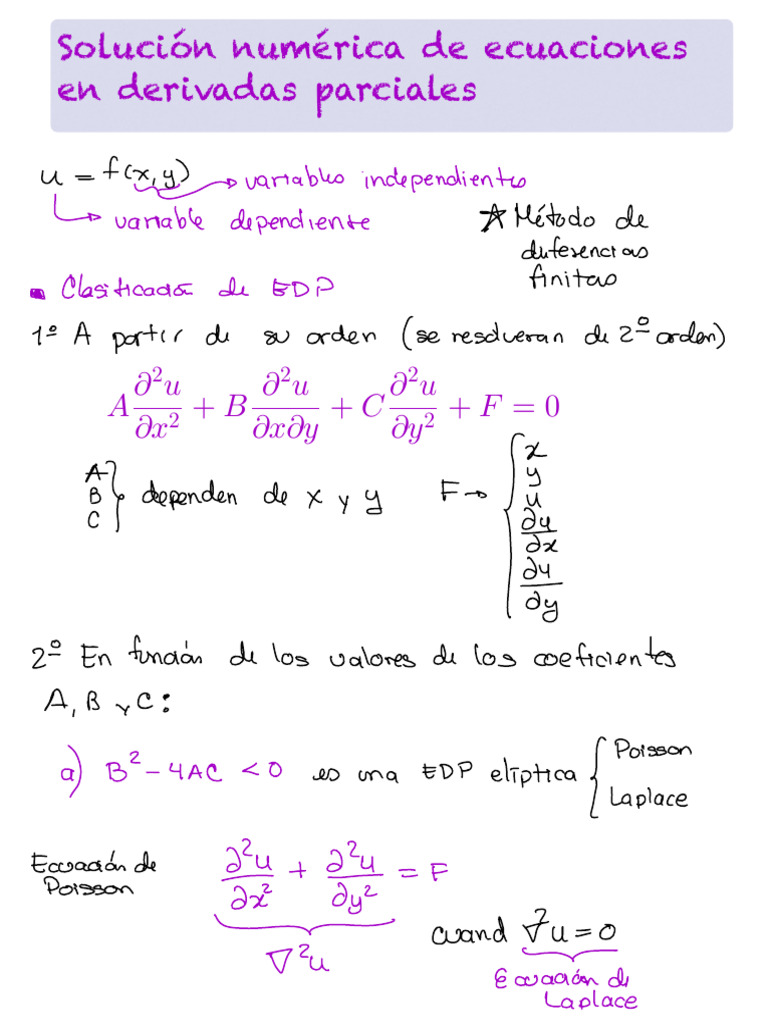 Solución numérica de ecuaciones
en derivadas parciales
u = f(x,y) → variables independientes
→ variable dependiente
☆ Método de
diferencias
finitas
▪ Clasificación de EDP
1º A partir de su orden (se resolveran de 2º orden)
A ∂²u/∂x² + B ∂²u/∂x∂y + C ∂²u/∂y² + F = 0
A
B
C
} dependen de x y y
F → {
x
y
u
∂u/∂x
∂u/∂y
2º En función de los valores de los coeficientes
A, B y C:
a) B² - 4AC < 0 es una EDP elíptica { Poisson
Laplace
Ecuación de
Poisson
∂²u/∂x² + ∂²u/∂y² = F
∇²u
cuand ∇²u = 0
Ecuación de
Laplace